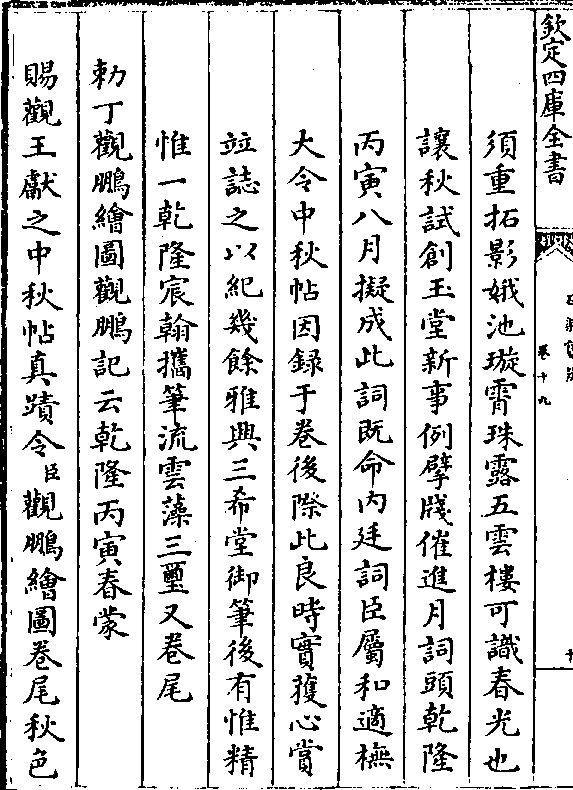 欽定四庫全書
卷十九
須重拓影娥池璇霄珠露五雲樓可識春光也
讓秋試創玉堂新事例擘牋催進月詞頭乾隆
丙寅八月擬成此詞既命内廷詞臣屬和適橅
大令中秋帖因録于卷後際此良時實獲心賞
竝誌之以紀幾餘雅興三希堂御筆後有惟精
惟一乾隆宸翰攜筆流雲藻三璽又卷尾
勅丁觀鵬繪圖觀鵬記云乾隆丙寅春蒙
賜觀王獻之中秋帖真蹟令臣觀鵬繪圖卷尾秋色